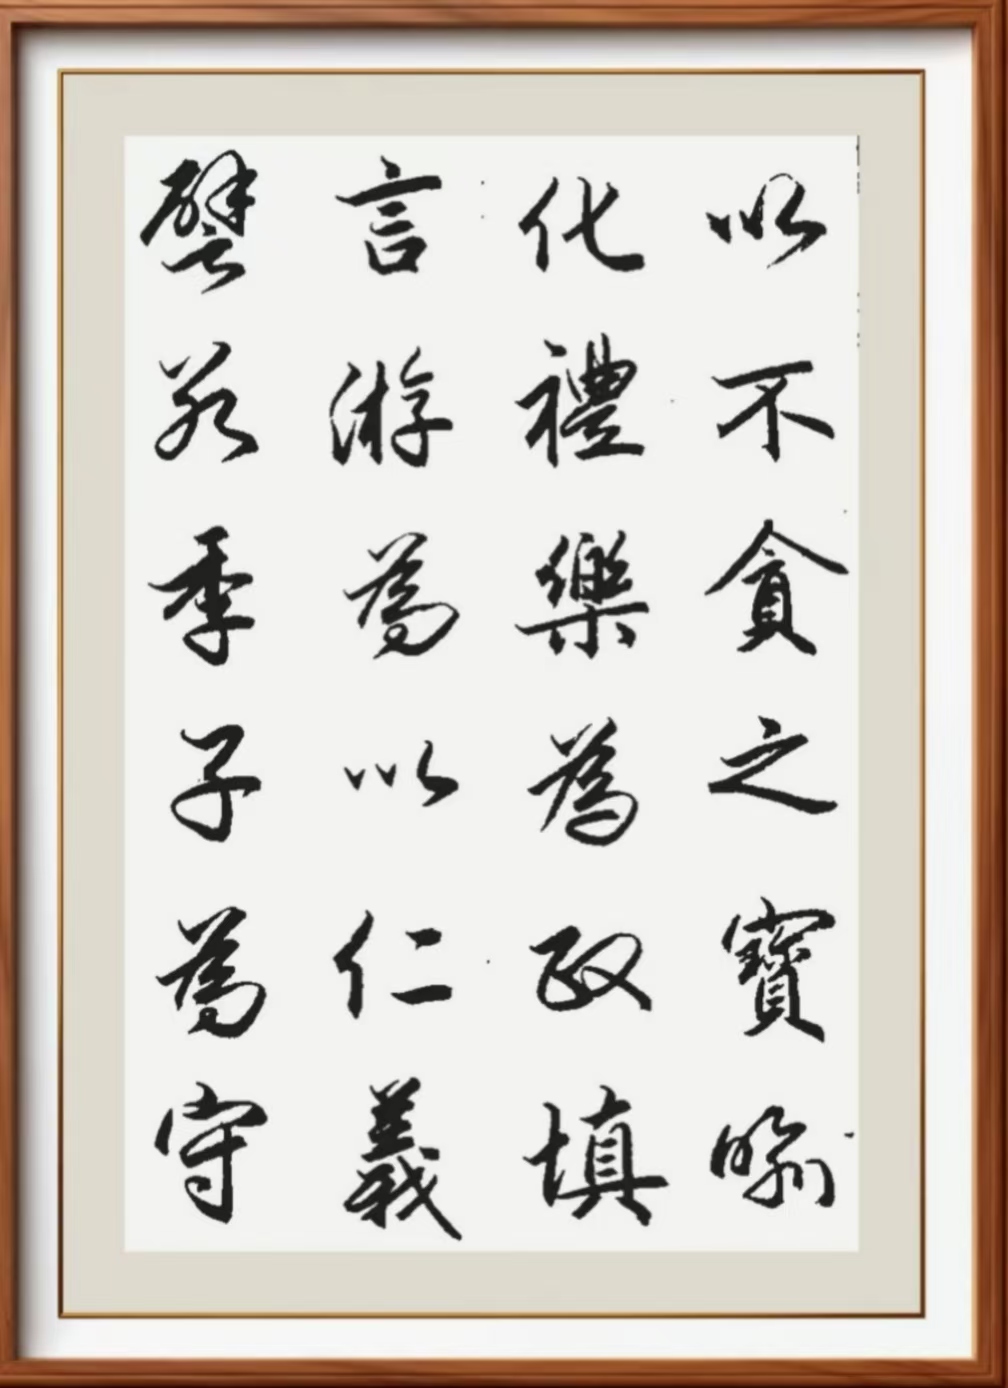 以不貪之寶喻
化禮樂為政填
言游為以仁義
譬若季子為守